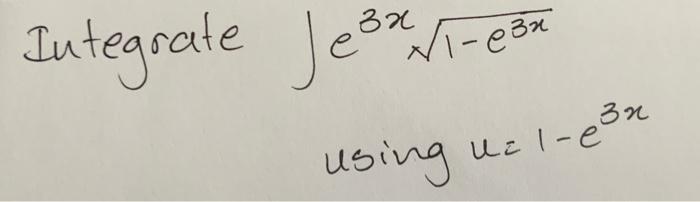 Integrate ∫e³ˣ√1-e³ˣ
using u = 1-e³ˣ